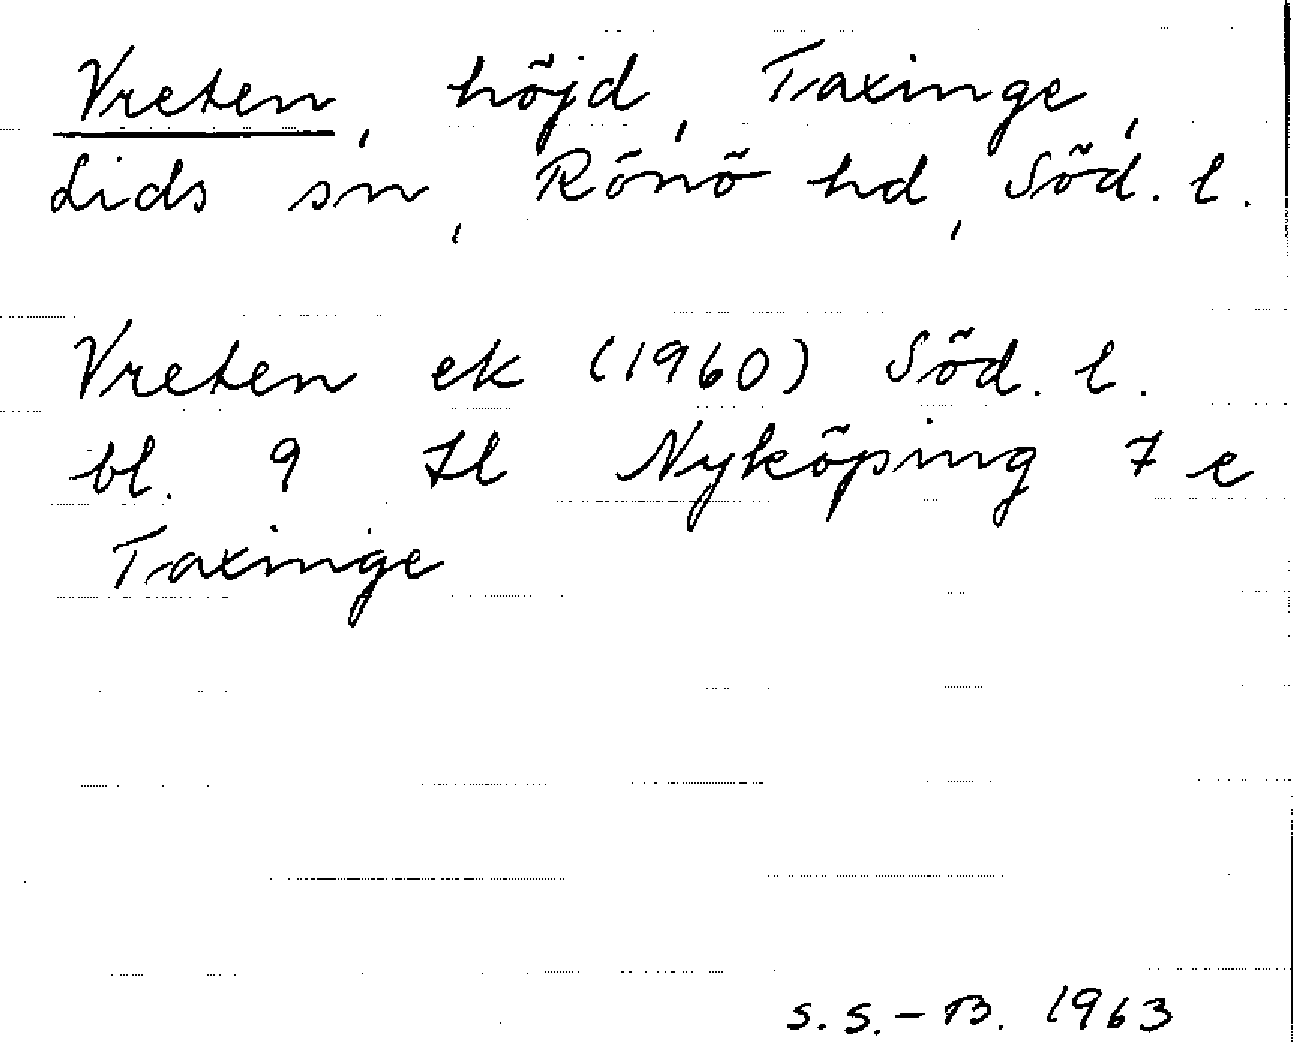 Vreten, höjd, Taxinge,
Lids sn, Rönö hd, Söd. l.
Vreten ek (1960) Söd. l.
bl. 9 Il Nyköping 7 e
Taxinge
S. S. - B. 1963